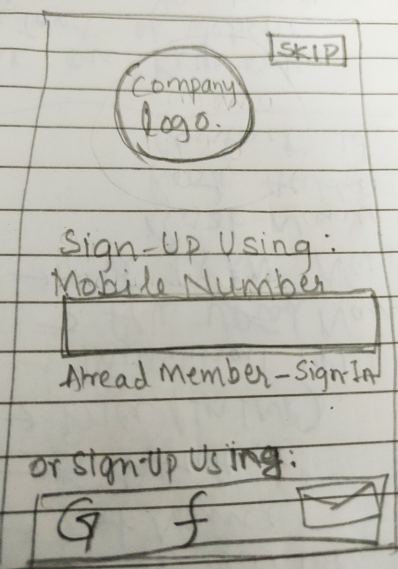 SKIP
Company
logo.
Sign-Up Using:
Mobile Number
Alread Member-Sign-In
or Sign-Up Using:
G f